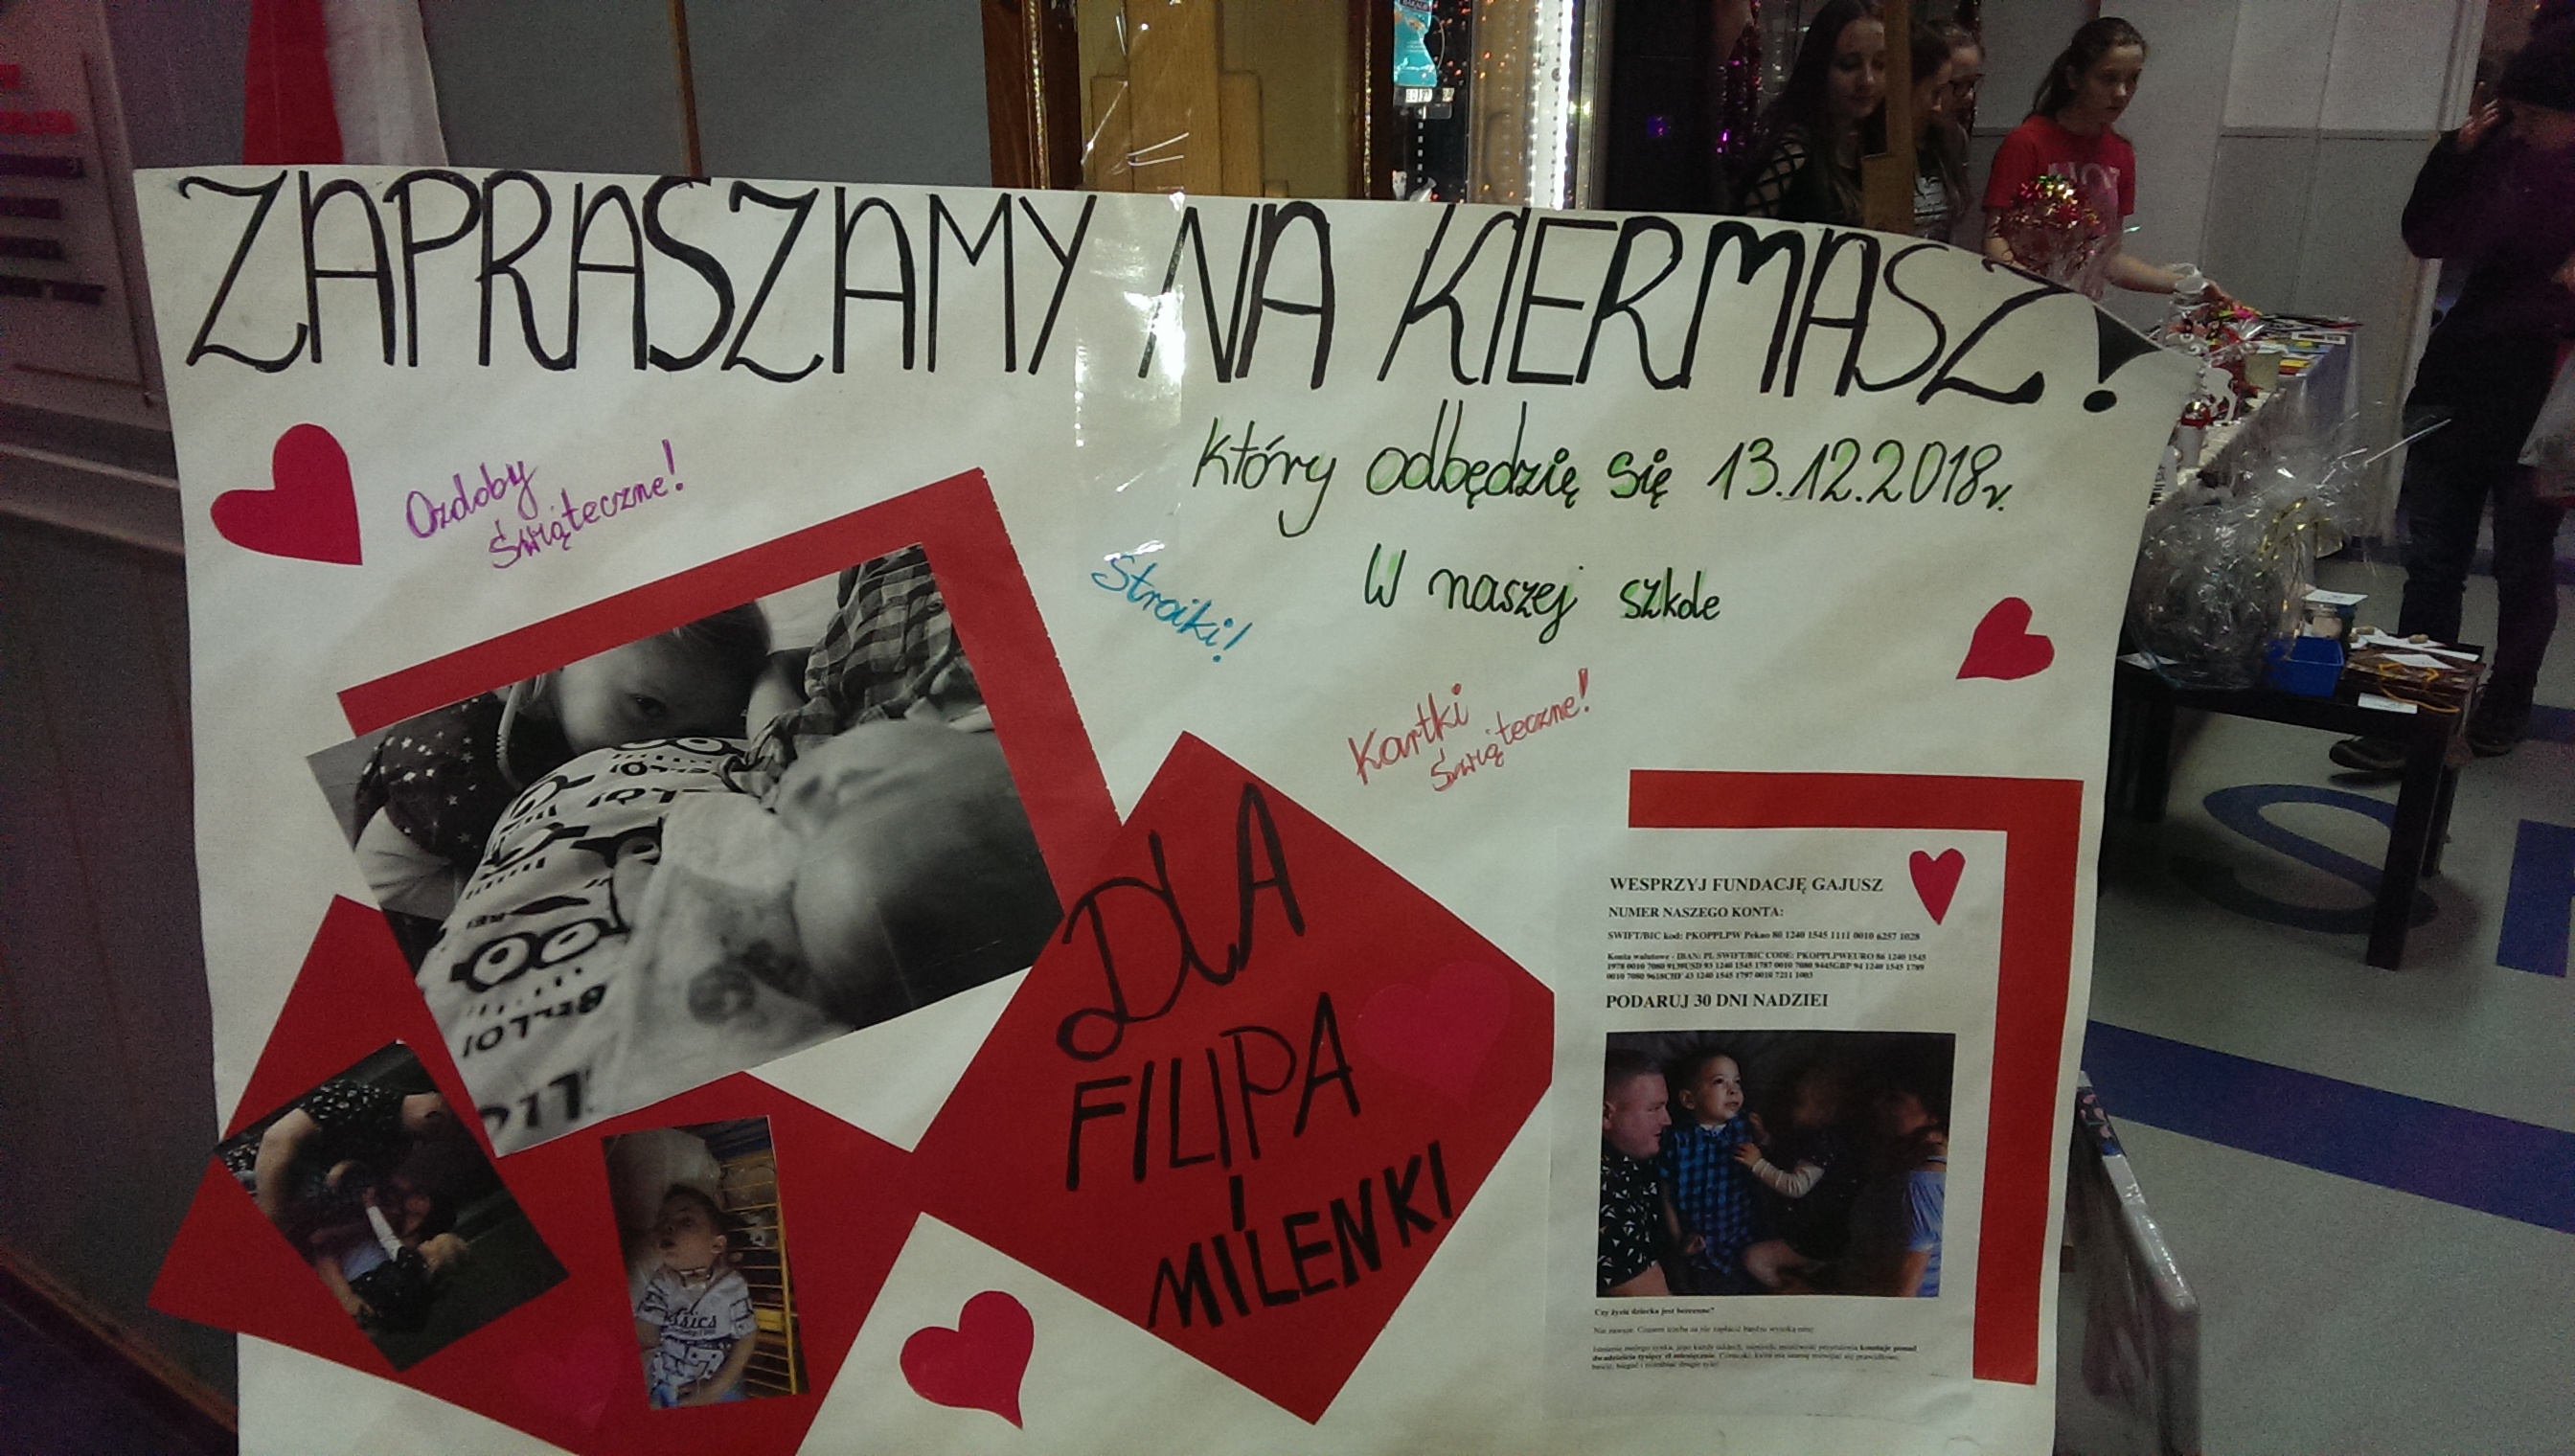 ZAPRASZAMY NA KIERMASZ!
który odbędzię się 13.12.2018r.
W naszej szkole
Ozdoby
świąteczne!
Stroiki!
Kartki
świąteczne!
DLA
FILIPA
I
MILENKI
WESPRZYJ FUNDACJĘ GAJUSZ
NUMER NASZEGO KONTA:
SWIFT/BIC kod: PKOPPLPW Pekao 80 1240 1545 1111 0010 6257 1028
Konta walutowe - IBAN: PL SWIFT/BIC CODE: PKOPPLPWEURO 86 1240 1545
1978 0010 7080 9139USD 93 1240 1545 1787 0010 7080 9445GBP 94 1240 1545 1789
0010 7080 9618CHF 43 1240 1545 1797 0010 7211 1003
PODARUJ 30 DNI NADZIEI
Czy życie dziecka jest bezcenne?
Nie zawsze. Czasem trzeba za nie zapłacić bardzo wysoką cenę.